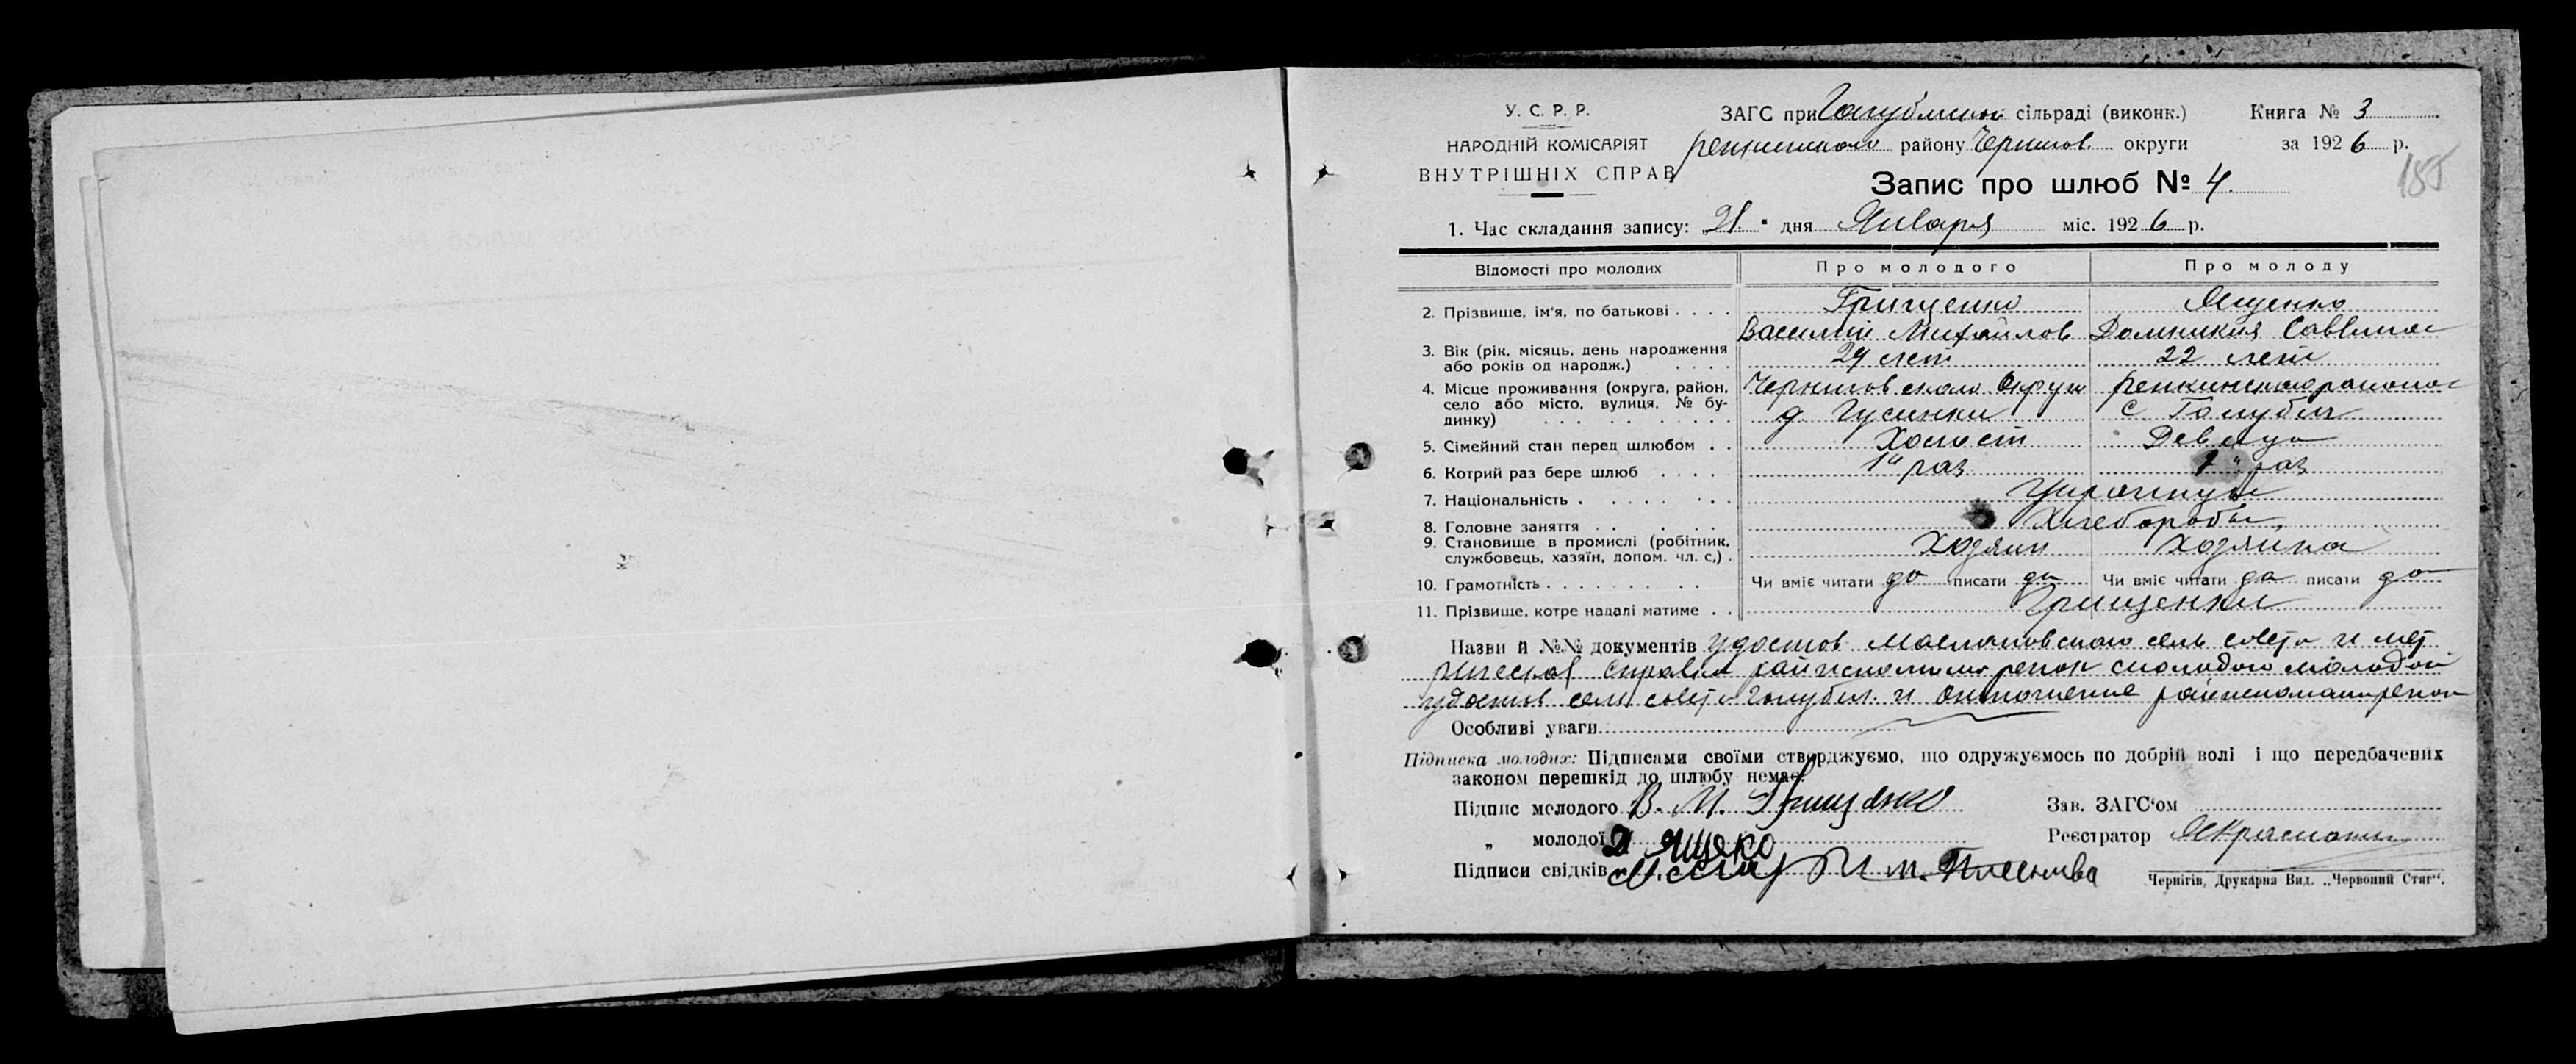 У. С. Р. Р.
НАРОДНІЙ КОМІСАРІЯТ
ВНУТРІШНІХ СПРАВ
ЗАГС при сільраді (виконк.)
району Чернигов. округи
Книга № 3
за 1926 р.
185
Запис про шлюб № 4.
1. Час складання запису: 21. дня Января міс. 1926 р.
Відомості про молодих
Про молодого
Про молоду
2. Прізвище, ім'я, по батькові
Грищенко
Василий Михайлов
Ященко
Домникия Саввина
3. Вік (рік, місяць, день народження
або років од народж.)
лет
22 лет
4. Місце проживання (округа, район,
село або місто, вулиця, № бу-
динку)
Черниговского Округа
д. Гусинки
Репкинского района
с Голубичи
5. Сімейний стан перед шлюбом
Холост
Девица
6. Котрий раз бере шлюб
1й раз
раз
7. Національність
Украинцы
8. Головне заняття
Хлеборобы
9. Становище в промислі (робітник,
службовець, хазяїн, допом. чл. с.)
Хозяин
хозяина
10. Грамотність
Чи вміє читати да писати да
Чи вміє читати да писати да
11. Прізвище, котре надалі матиме
Грищенки
Назви й №№ документів удостов. сель совета и мет
молодой
удостов сель совета Голубич. и отношение
Особливі уваги
Підписка молодих: Підписами своїми стверджуємо, що одружуємось по добрій волі і що передбачених
законом перешкід до шлюбу немає.
Підпис молодого В. М. Грищенко
" молодої Д Ящеко
Підписи свідків
Зав. ЗАГС'ом
Реєстратор
Чернігів, Друкарня Вид. „Червоний Стяг“.